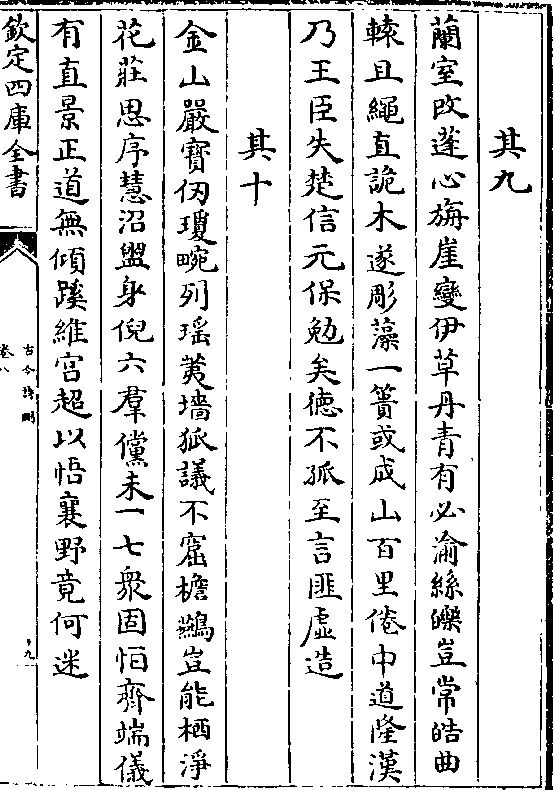 其九
蘭室改蓬心旃崖變伊草丹青有必渝絲皪豈常皓曲
轅且繩直詭木遂彫藻一簣或成山百里倦中道隆漢
乃王臣失楚信元保勉矣德不孤至言匪虚造
其十
金山嚴寶仞瓊畹列瑶荑墻狐議不窟檐鷃豈能栖淨
花莊思序慧沼盥身倪六羣儻未一七衆固恒齊端儀
有直景正道無傾蹊維宫超以悟襄野竟何迷
欽定四庫全書
古今詩刪
卷八
九